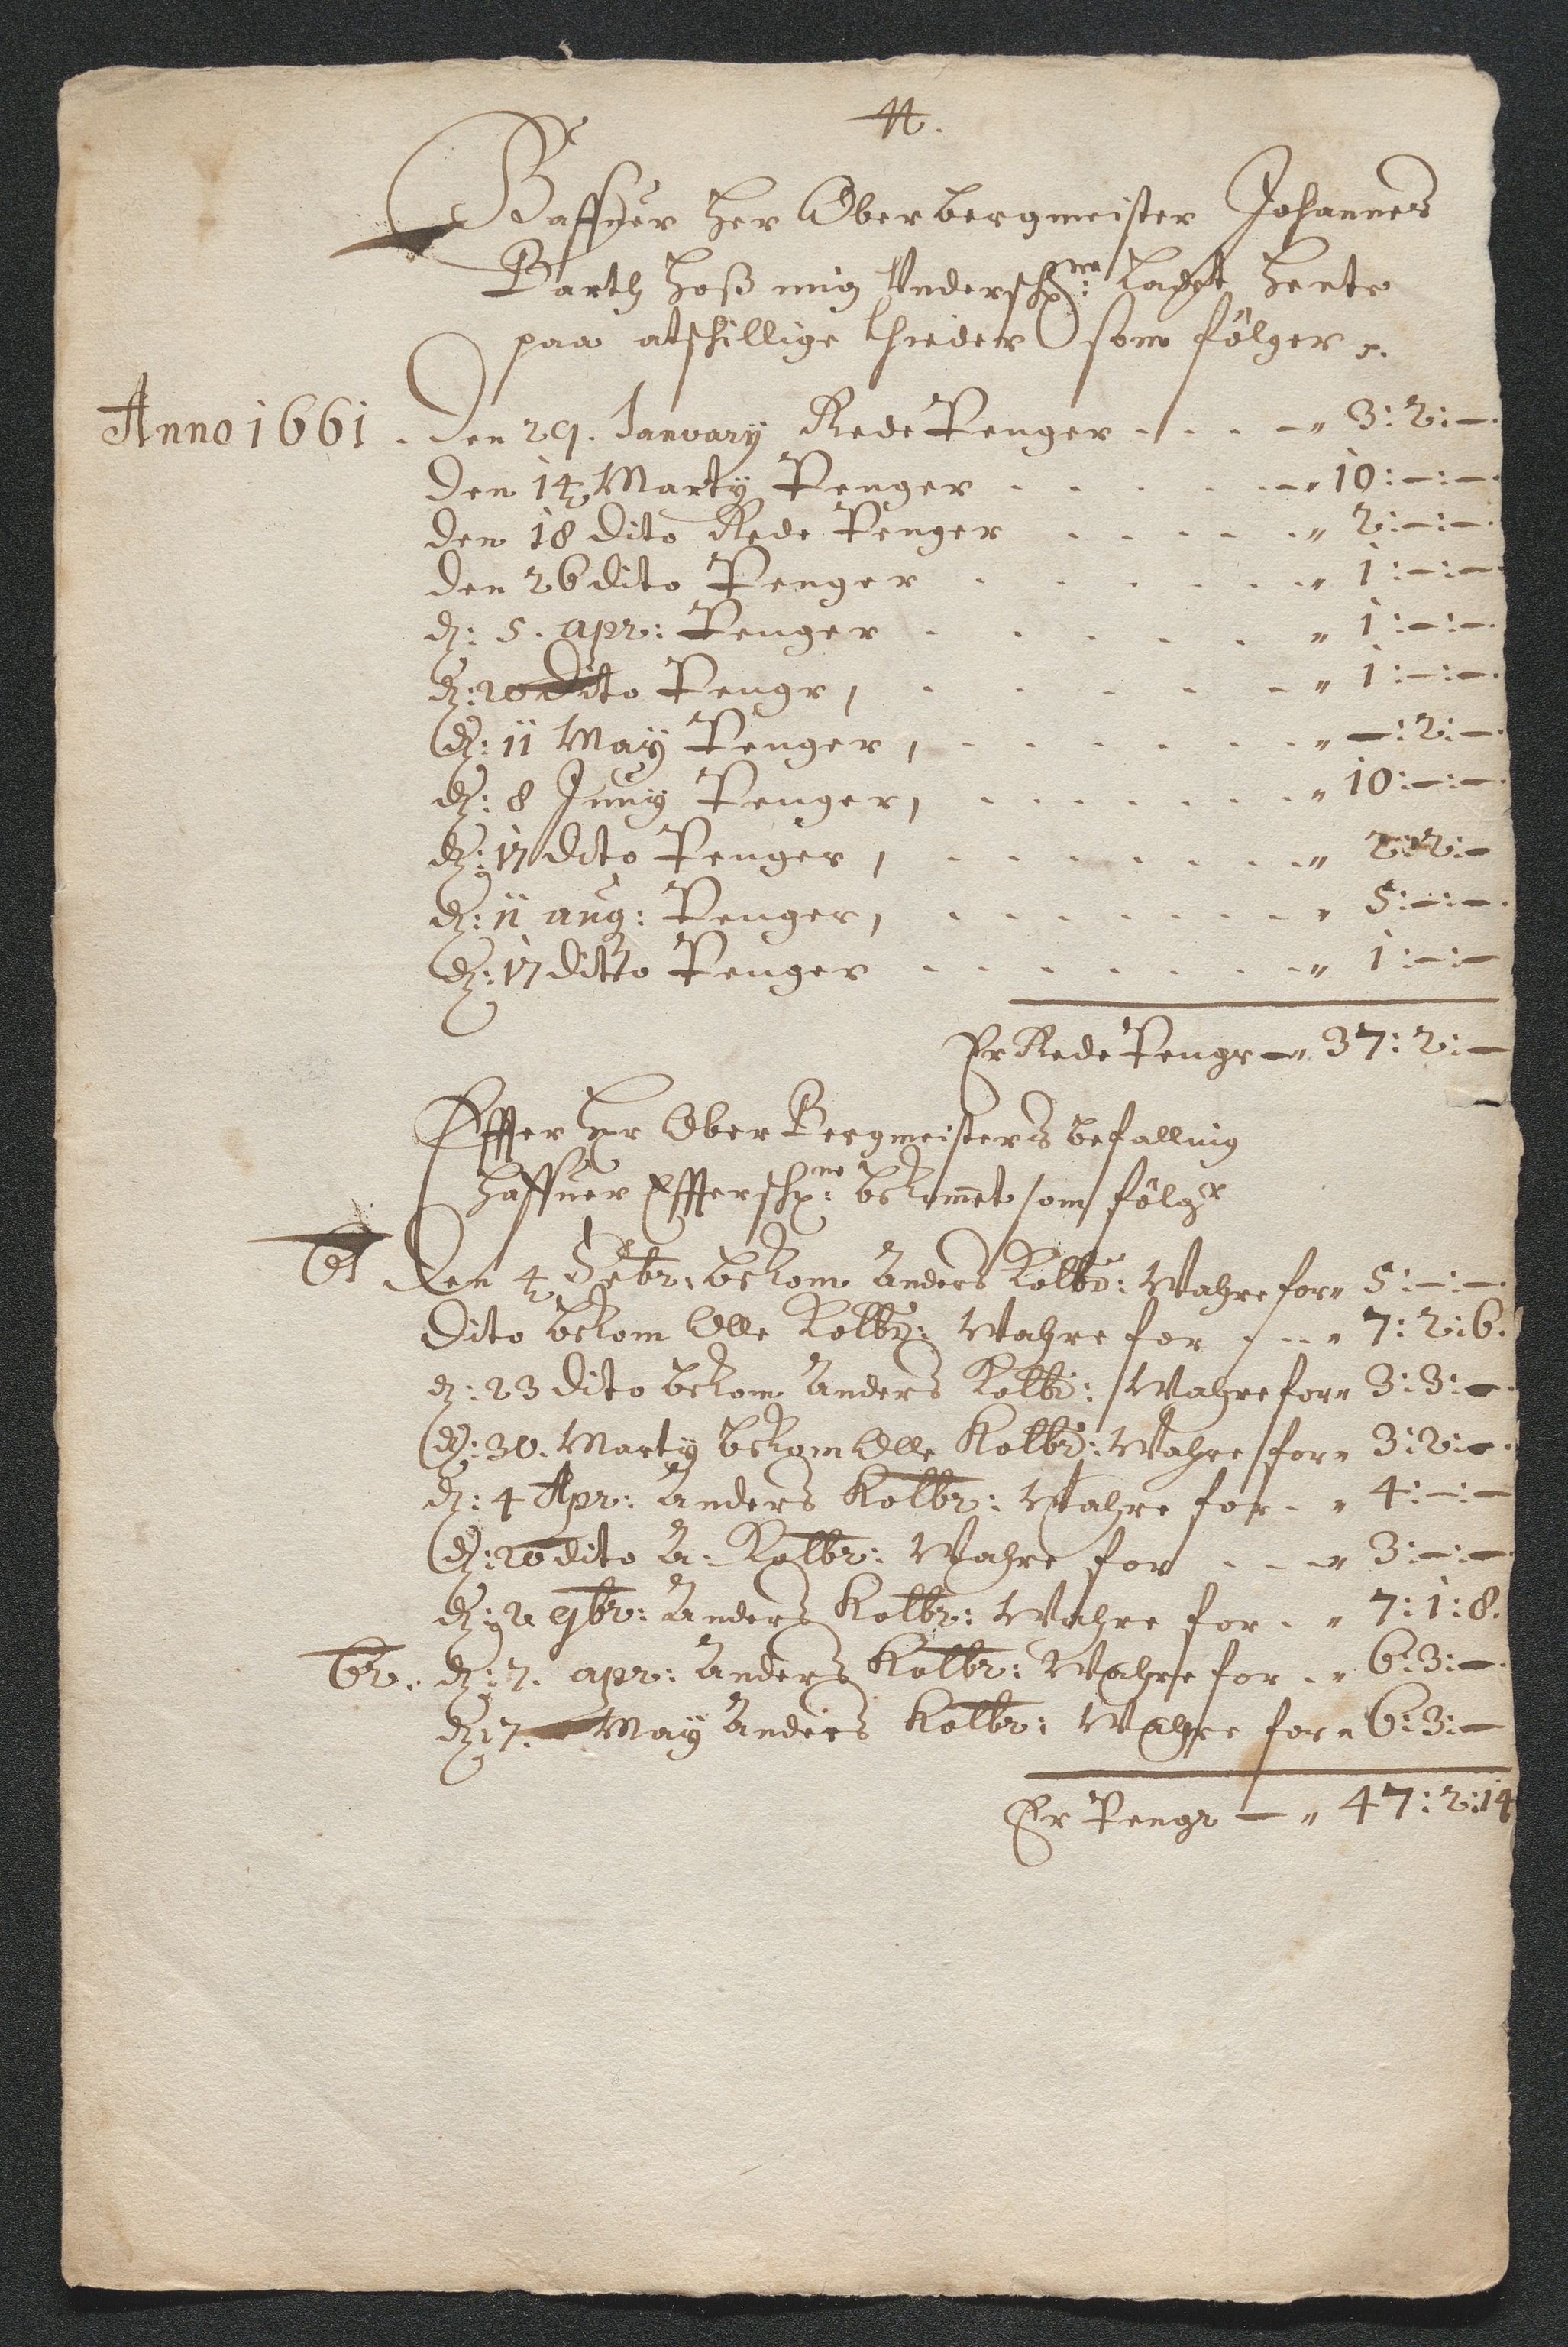 A.
Haffuer Her Oberbergmeister Johannes
Barth hoß mig Underschr: ne ladet hente
paa atskillige thieder som følger
Anno 1661. Den 29. January Rede Penger - - - " 3: 2: —
Den 14 Marty Penger - - - - " 10: —: —
den 18 dito Rede Penger - - - - " 2: —: —
den 26 dito Penger - - - - " 1: —: —
d: 5. apr: Penger - - - - " 1: —: —
d: 20 dito Pengr, - - - - " 1: —: —
d: 11 May Penger, - - - - " —: 2: —
d: 8 Juny Penger, - - - - " 10: —: —
d: 17 dito Penger, - - - - " 2: 2: —
d: 11 aug: Penger, - - - - " 5: —: —
d: 17 ditto Penger - - - - " 1: —: —
Er Rede Pengr — " 37: 2: —
Effter Her Ober Bergmeisters befalling
haffuer Effterschr: ne bekommet som følgr
61 Den 4 Febr: bekom Anders Kolbr: Wahre for " 5: —: —
Dito bekom Olle Kolbr: Wahre for - - " 7: 2: 6.
d: 23 dito bekom Anders Kolbr: Wahre for " 3: 3: —
d: 30. Marty bekom Olle Kolbr: Wahre for " 3: 2: —
d: 4 Apr: Anders Kolbr: Wahre for - " 4: —: —
d: 20 dito A: Kolbr: Wahre for - - " 3: —: —
d: 2 9br: Anders Kolbr: Wahre for - " 7: 1: 8.
62. d: 7. apr: Anders Kolbr: Wahre for - " 6: 3: —
d: 7. May Anders Kolbr: Wahre for " 6: 3: —
Er Pengr — " 47: 2: 14